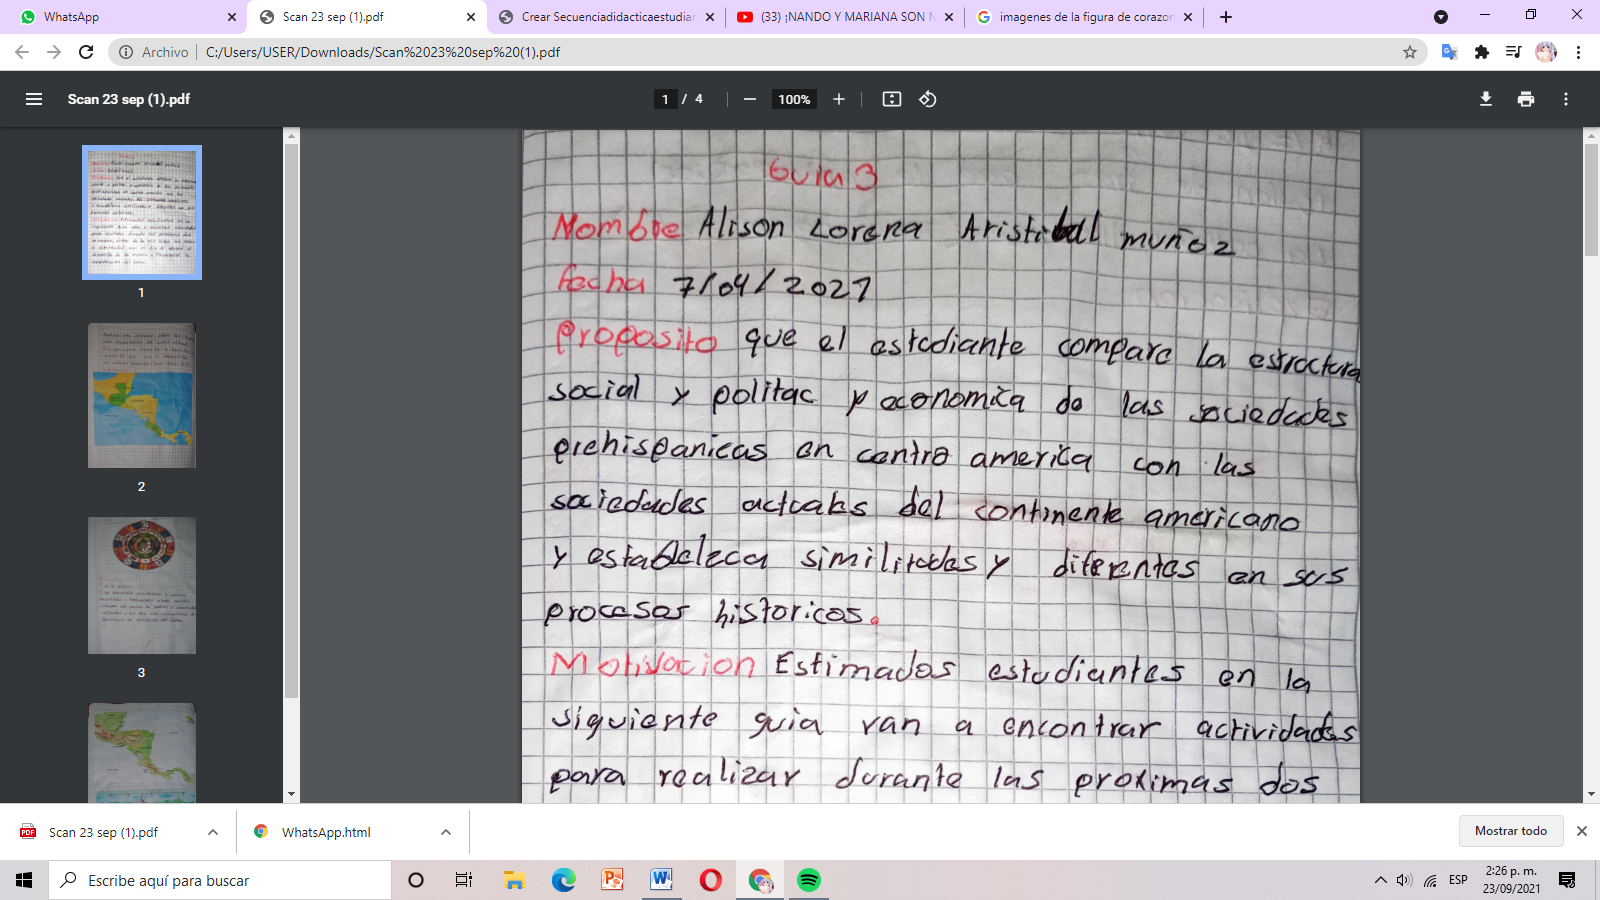 WhatsApp
Scan 23 sep (1).pdf
Crear Secuenciadidacticaestudian
(33) ¡NANDO Y MARIANA SON N
imagenes de la figura de corazon
Archivo
C:/Users/USER/Downloads/Scan%2023%20sep%20(1).pdf
Scan 23 sep (1).pdf
1 / 4
100%
1
2
3
Guia 3
Nombre Alison Lorena Aristibal muñoz
fecha 7/04/2021
Proposito que el estudiante compare la estractura
social y politac y economica de las sociedades
prehispanicas en centro america con las
sociedades actuales del continente americano
y estableleca similitudes y diferentes en sus
procesos historicos.
Motivacion Estimados estudiantes en la
siguiente guia van a encontrar actividades
para realizar durante las proximas dos
Scan 23 sep (1).pdf
WhatsApp.html
Mostrar todo
Escribe aquí para buscar
ESP
2:26 p. m.
23/09/2021